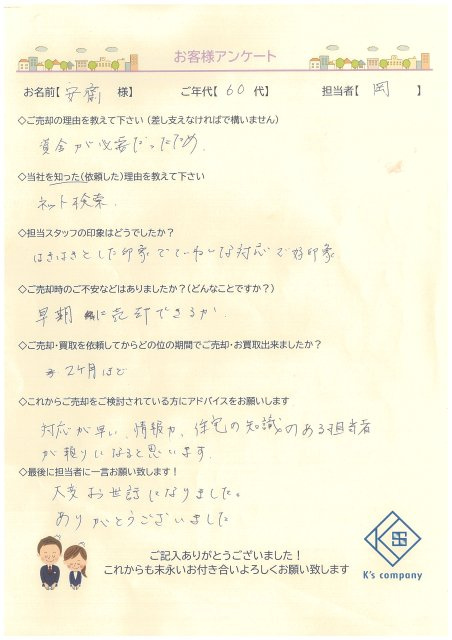 お客様アンケート
お名前【 安齋 様】 ご年代【 60 代】 担当者【 岡 】
◇ご売却の理由を教えて下さい（差し支えなければで構いません）
資金が必要だったため.
◇当社を知った（依頼した）理由を教えて下さい
ネット検索.
◇担当スタッフの印象はどうでしたか？
はきはきとした印象でていねいな対応で好印象
◇ご売却時のご不安などはありましたか？（どんなことですか？）
早期に売却できるか.
◇ご売却・買取を依頼してからどの位の期間でご売却・お買取出来ましたか？
2ヶ月ほど
◇これからご売却をご検討されている方にアドバイスをお願いします
対応が早い、情報力、住宅の知識のある担当者
が頼りになると思います.
◇最後に担当者に一言お願い致します！
大変お世話になりました。
ありがとうございました
ご記入ありがとうございました！
これからも末永いお付き合いよろしくお願い致します
K's company